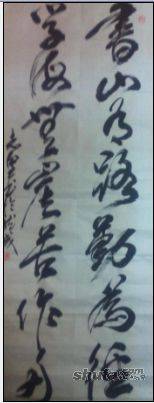 書山有路勤為徑
學海無崖苦作舟